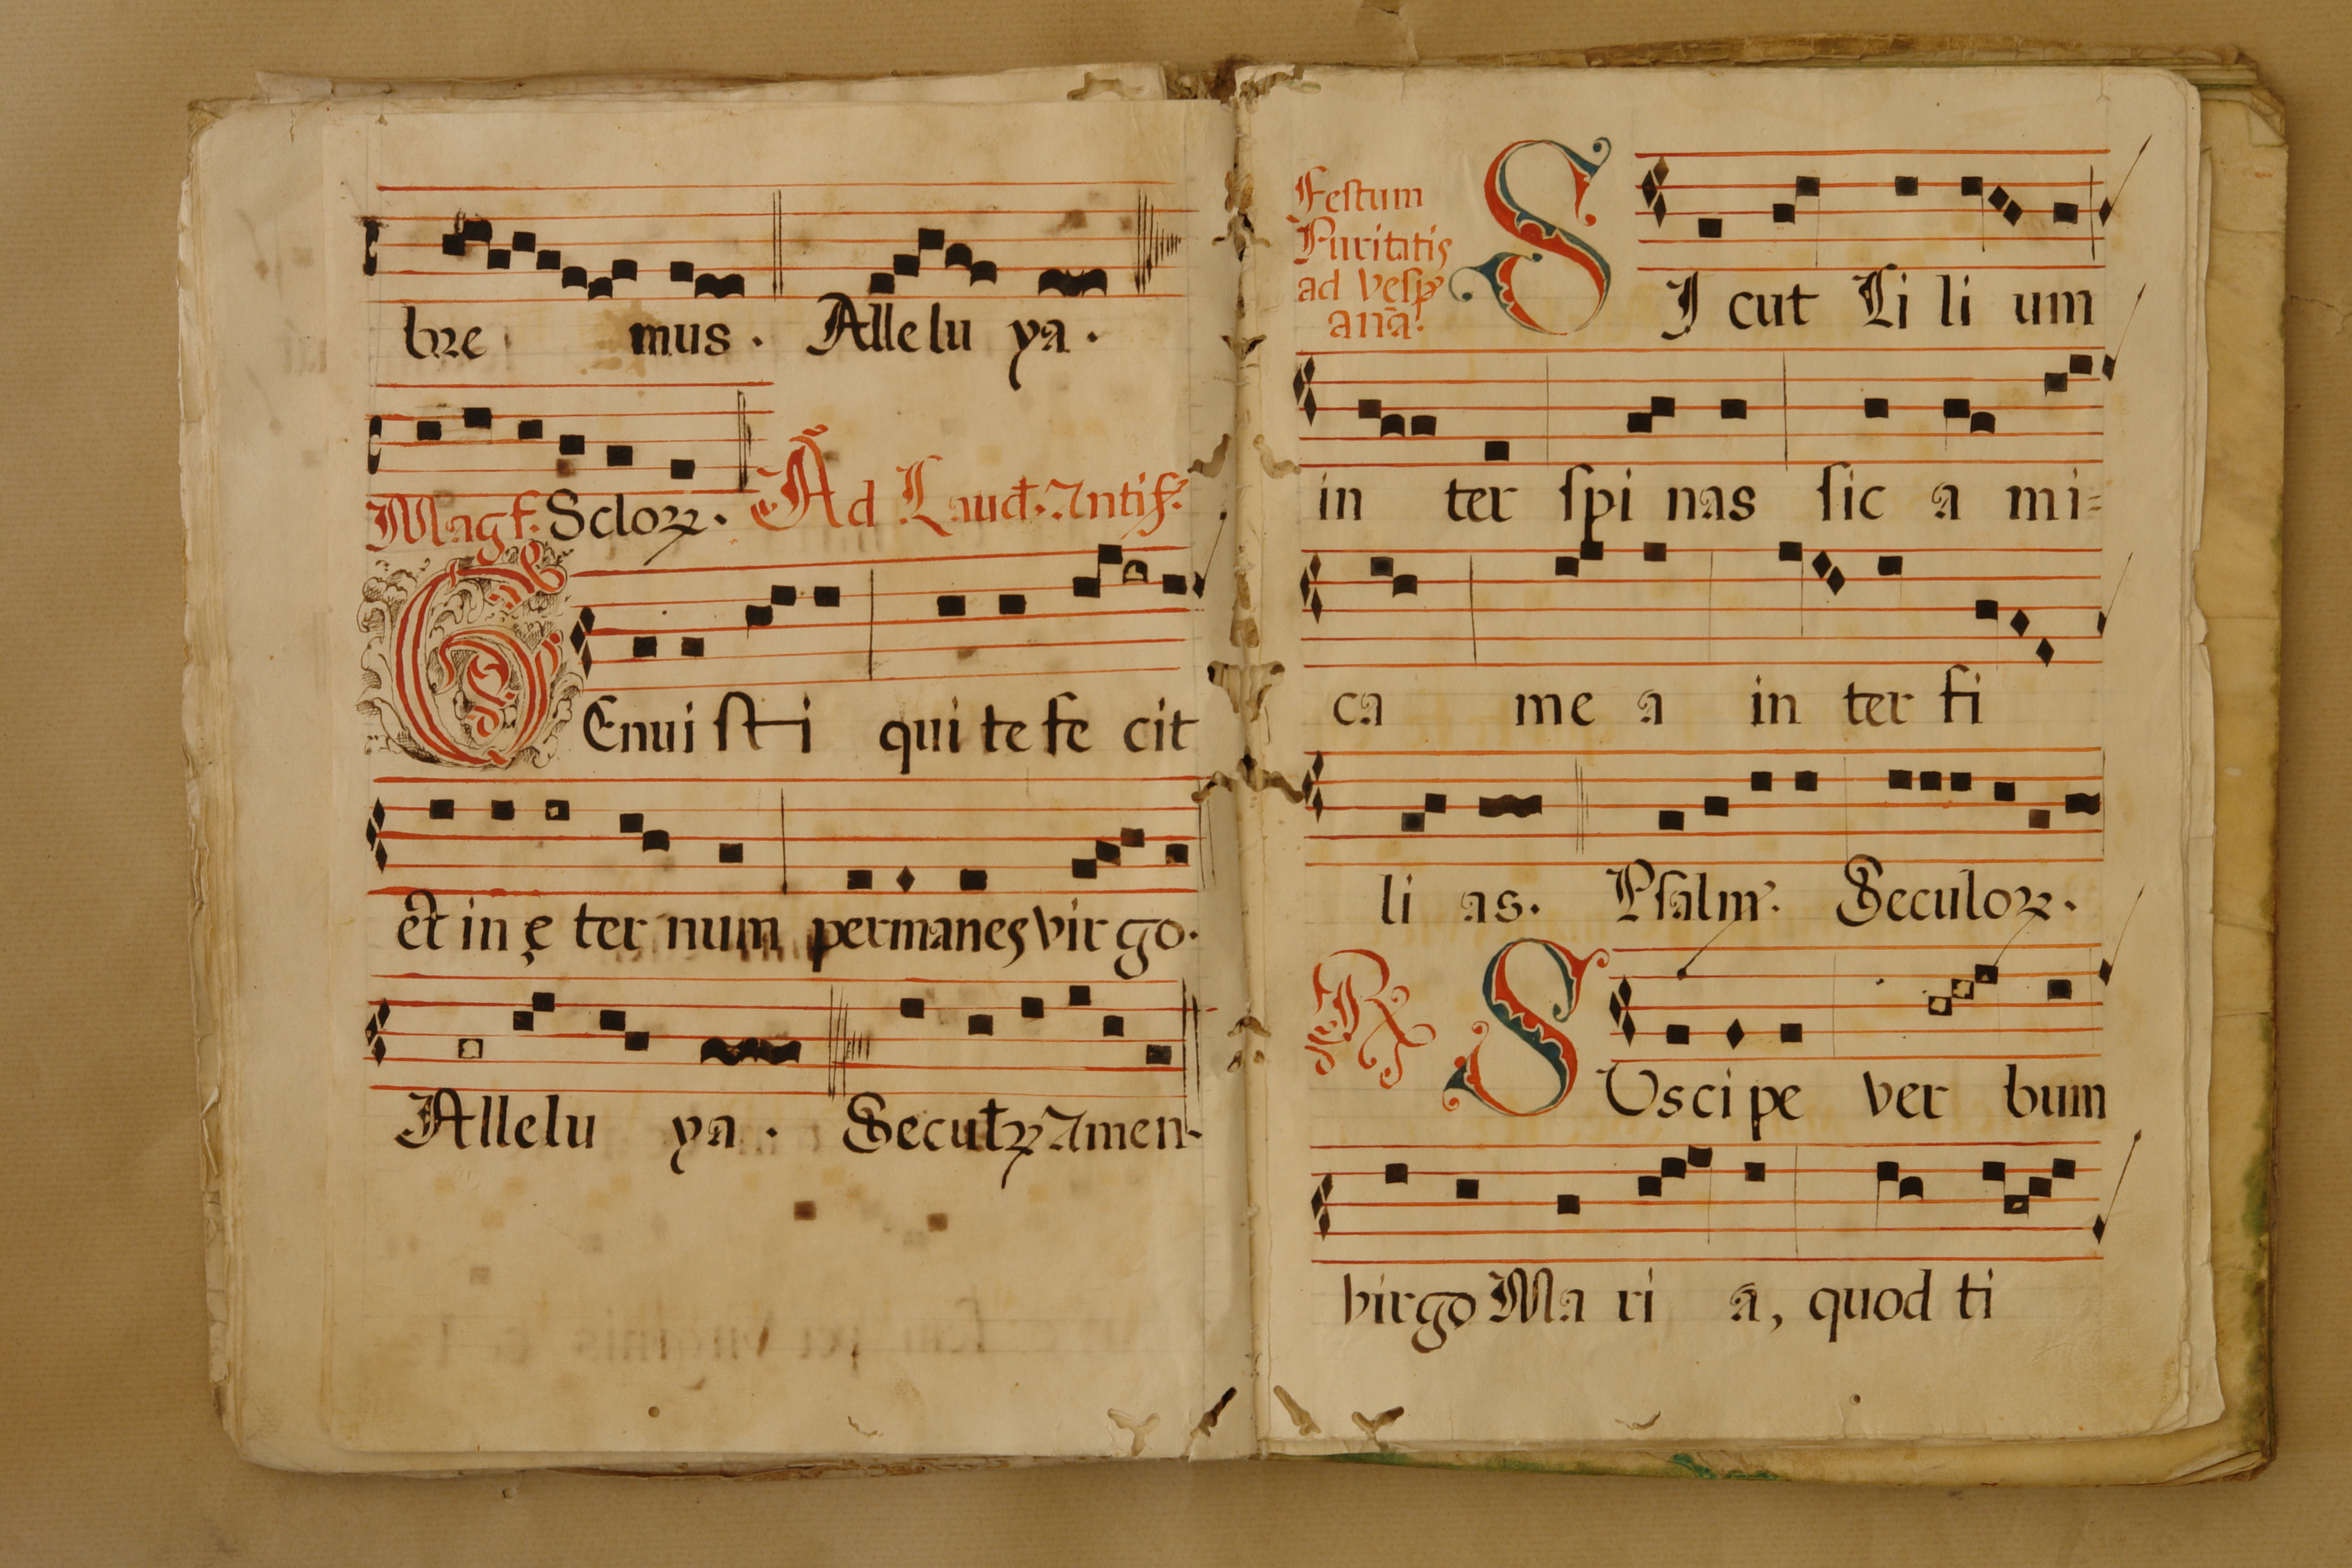 bre mus. Allelu ya.
Magf. Scloꝝ. Ad Laud. Antif.
GEnui sti qui te fe cit
et in ę ter num permanes vir go.
Allelu ya. Seculꝝ Amen.
Festum
Puritatis
ad vesp
anā.
SI cut Li li um
in ter ſpi nas ſic a mi=
ca me a in ter fi
li as. Pſalm. Seculoꝝ.
R SUsci pe ver bum
virgo Ma ri a, quod ti